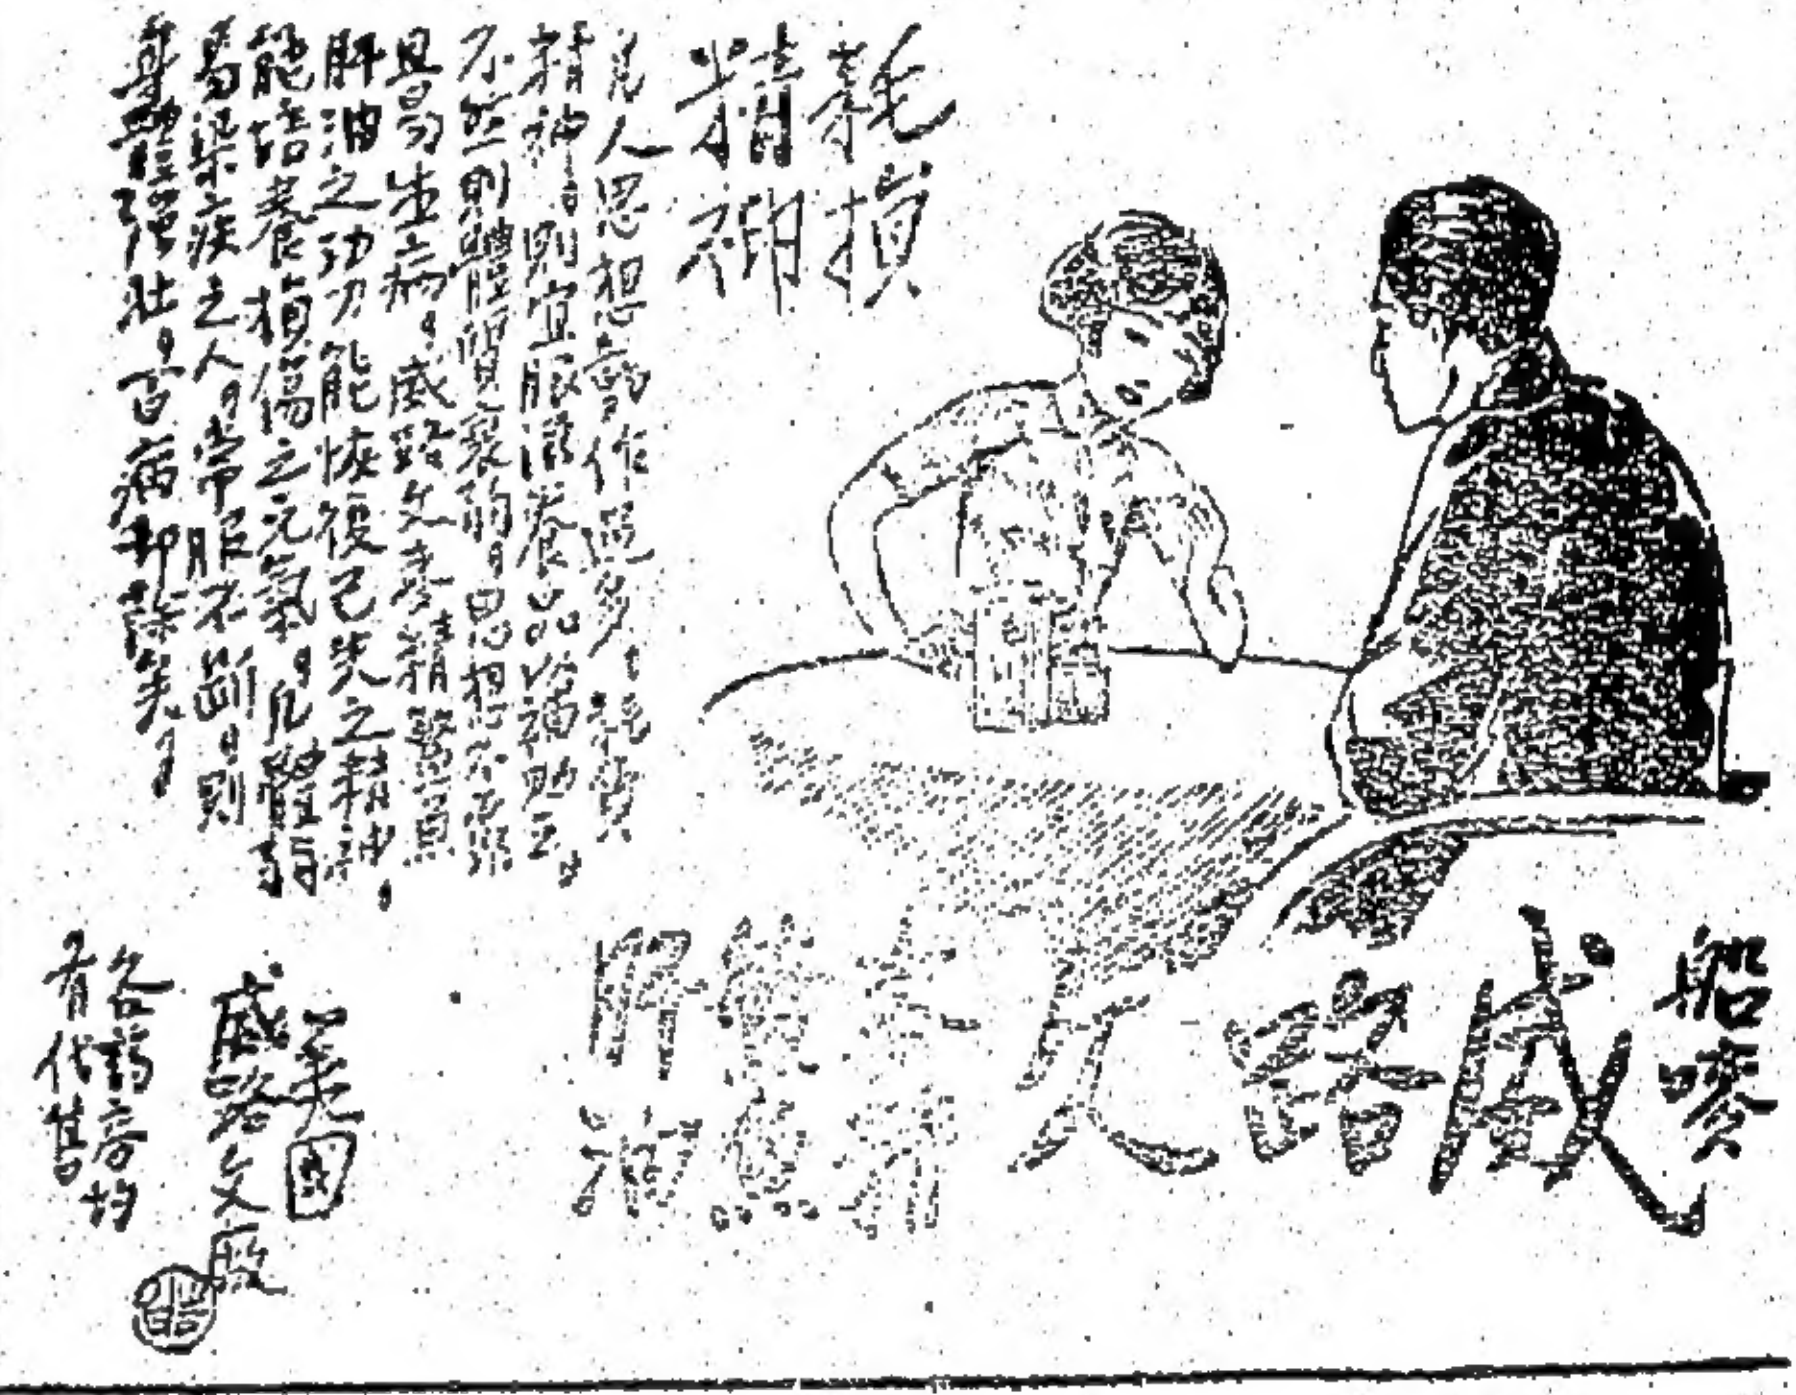 耗損
精神
凡人思想動作過多、耗損
精神、則宜服滋養品以補助之。
不然則體質衰弱、思想不靈
且易生病。威路文麥精鱉魚
肝油之功力能恢復已失之精神、
能培養損傷之元氣、凡體弱
易染疾之人、常服不斷、則
身體強壯、百病却除矣、
船嘜
威路文
麥精
鱉魚
肝油
美國
威路文廠
各藥房均
有代售